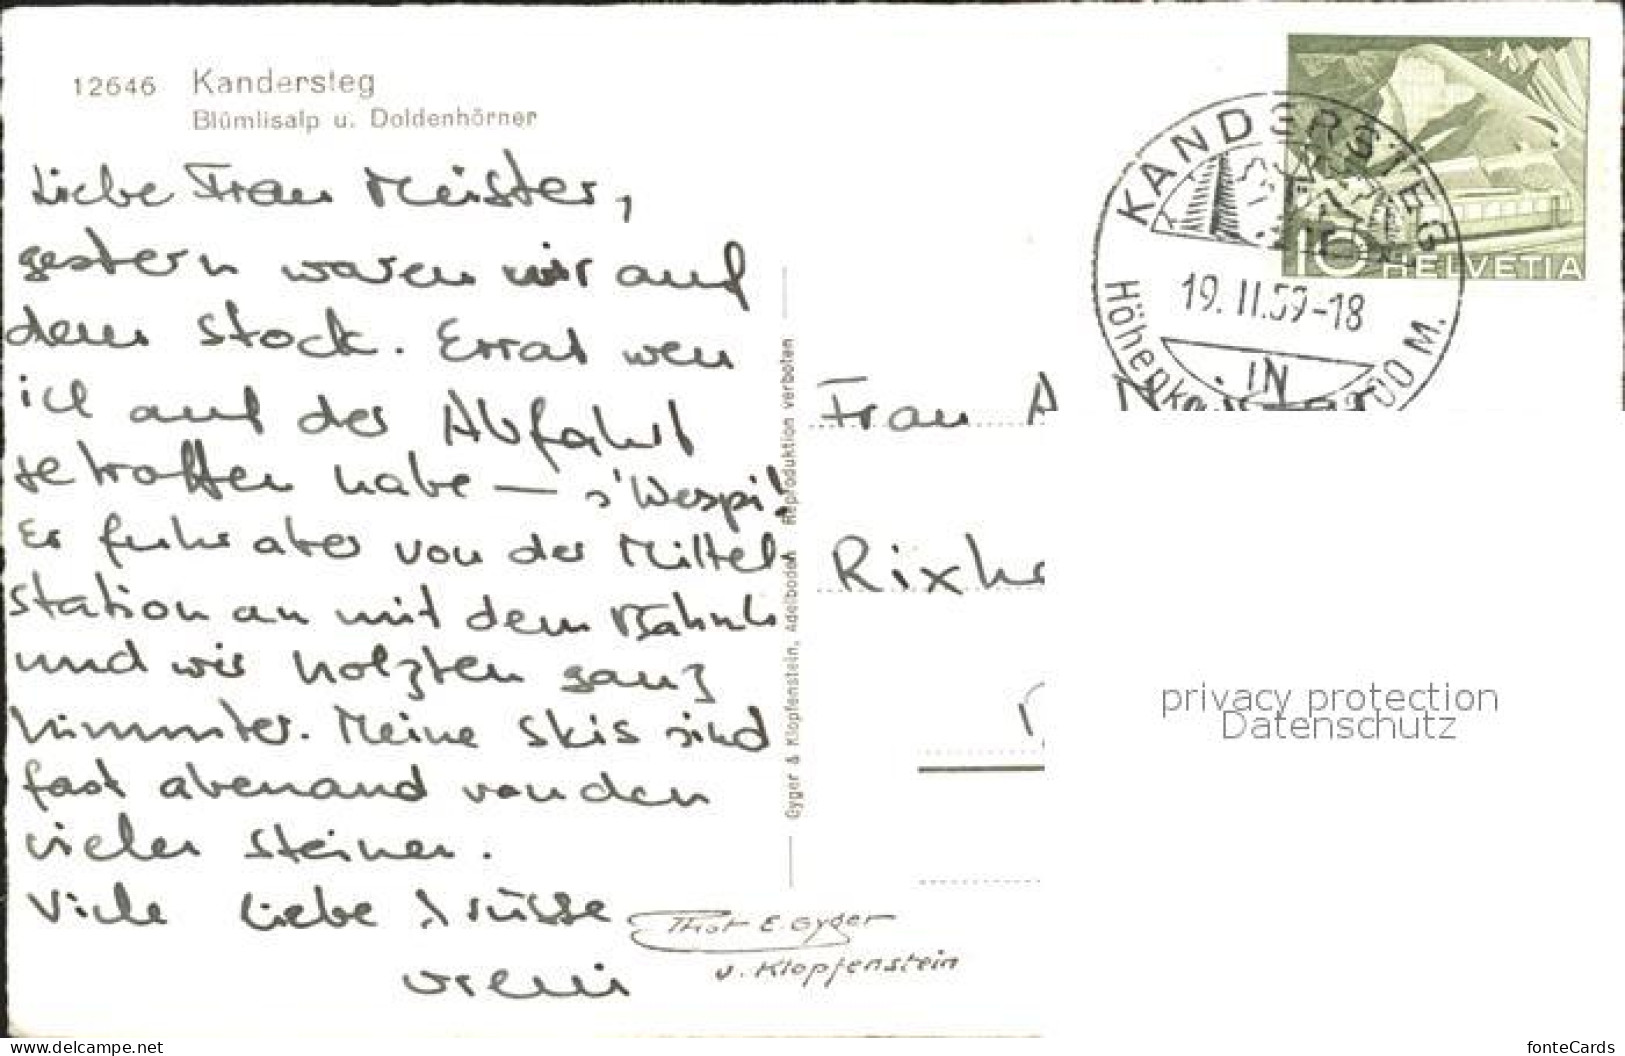 12646 Kandersteg
Blümlisalp u. Doldenhörner
Liebe Frau Meister,
gestern waren wir auf
dem Stock. Errat wen
ich auf der Abfahrt
getroffen habe — s'Wespi!
Er fuhr aber von der Mittel-
station an mit dem Bähnli
und wir holzten ganz
hinunter. Meine Skis sind
fast abenand von den
vielen Steinen.
Viele liebe Grüsse
Vreni
Gyger & Klopfenstein, Adelboden Reproduktion verboten
Phot E. Gyger
u. Klopfenstein
KANDERSTEG
19. II. 59-18
Höhenk
00 M.
IN
10 HELVETIA
Frau A
Rixh
privacy protection
Datenschutz
www.delcampe.net
fonteCards